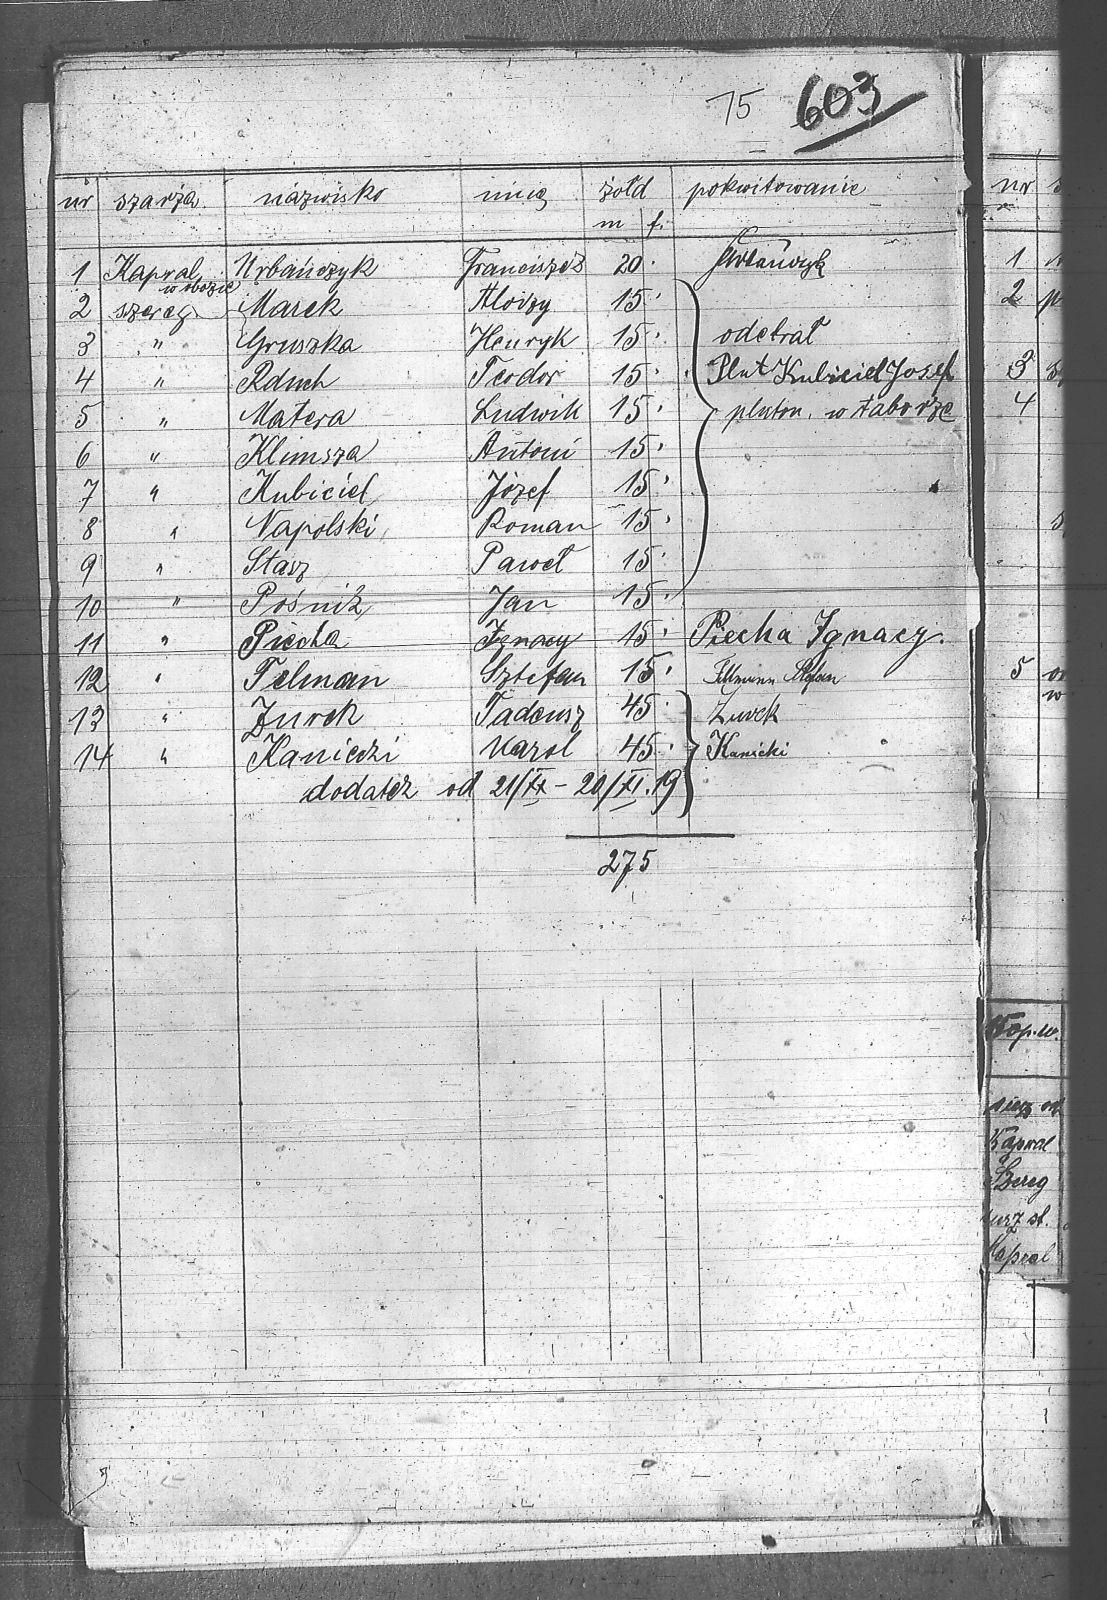 75 603
nr szarża nazwisko imię żołd pokwitowanie
m f.
1 Kapral Urbańczyk Franciszek 20
w obozie
2 szereg Marek Alojzy 15
3 " Gruszka Henryk 15 odebrał
4 " Rduch Teodor 15 Plut Kubiciel Josef
5 " Matera Ludwik 15 pluton. w taborze
6 " Klimsza Antoni 15
7 " Kubiciel Józef 15
8 " Napolski Roman 15
9 " Stasz Paweł 15
10 " Pośnik Jan 15
11 " Piecha Ignacy 15 Piecha Ignacy.
12 " Telman Sztefan 15
13 " Żurek Tadeusz 45 Żurek
14 " Kaniczi Karol 45 Kanicki
dodatek od 21/IX – 20/XI.19
275
nr
1
2 p
3
4
5
w
Kap.w.
Kapral
Szereg
st.
Kapral